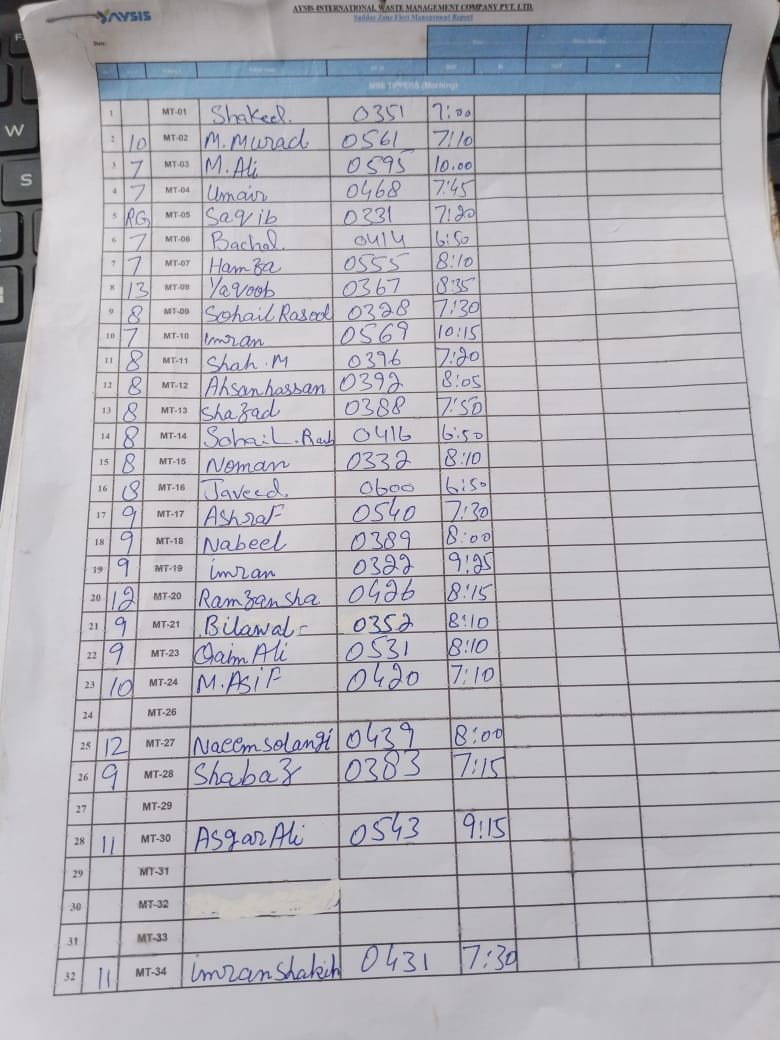 AYSIS
AYSIS INTERNATIONAL WASTE MANAGEMENT COMPANY PVT. LTD.
Saddar Zone Fleet Management Report
Date:
MINI TIPPERS (Morning)
1 MT-01 Shakeel. 0351 7:00
2 10 MT-02 M.Murad 0561 7:10
3 7 MT-03 M.Ali 0595 10.00
4 7 MT-04 Umair 0468 7:45
5 RG MT-05 Saqib 0331 7:20
6 7 MT-06 Bachal. 0414 6:50
7 7 MT-07 Hamza 0555 8:10
8 13 MT-08 Yaqoob 0367 8:35
9 8 MT-09 Sohail Rasool 0328 7:30
10 7 MT-10 imran 0569 10:15
11 8 MT-11 Shah.M 0396 7:20
12 8 MT-12 Ahsanhassan 0392 8:05
13 8 MT-13 Shazad 0388 7:50
14 8 MT-14 Sohail. 0416 6:50
15 8 MT-15 Noman 0332 8:10
16 8 MT-16 Javeed. 0600 6:50
17 9 MT-17 Ashraf 0540 7:30
18 9 MT-18 Nabeel 0389 8:00
19 9 MT-19 imran 0322 9:25
20 12 MT-20 Ramzansha 0426 8:15
21 9 MT-21 Bilawal- 0352 8:10
22 9 MT-23 Qaim Ali 0531 8:10
23 10 MT-24 M.Asif 0420 7:10
24 MT-26
25 12 MT-27 Naeemsolangi 0439 8:00
26 9 MT-28 Shabaz 0383 7:15
27 MT-29
28 11 MT-30 Asgar Ali 0543 9:15
29 MT-31
30 MT-32
31 MT-33
32 11 MT-34 imran 0431 7:30